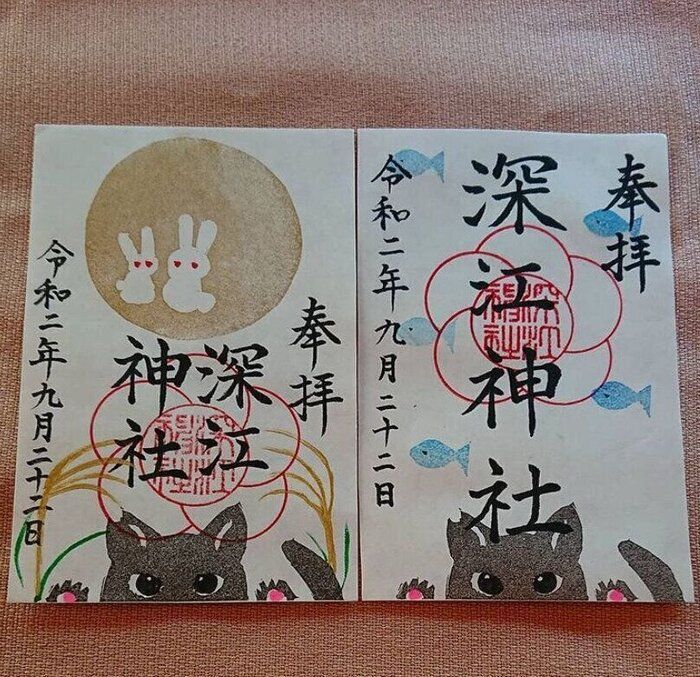 奉拝
深江
神社
深江
神社
令和二年九月二十二日
奉拝
深江神社
深江
神社
令和二年九月二十二日